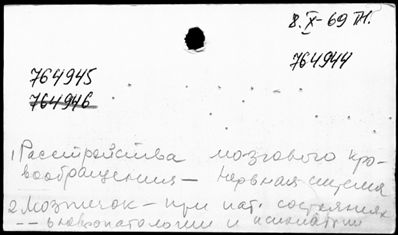 8.X-69 тг.
764945
764944
764946
1 Расстройства мозгового кро-
вообращения - нервная система
2 Мозжечок - при пат. состояниях
-- в невропатологии и психиатрии